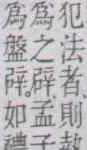 犯法者、則執
爲之辟孟子
爲盤辟。如禮